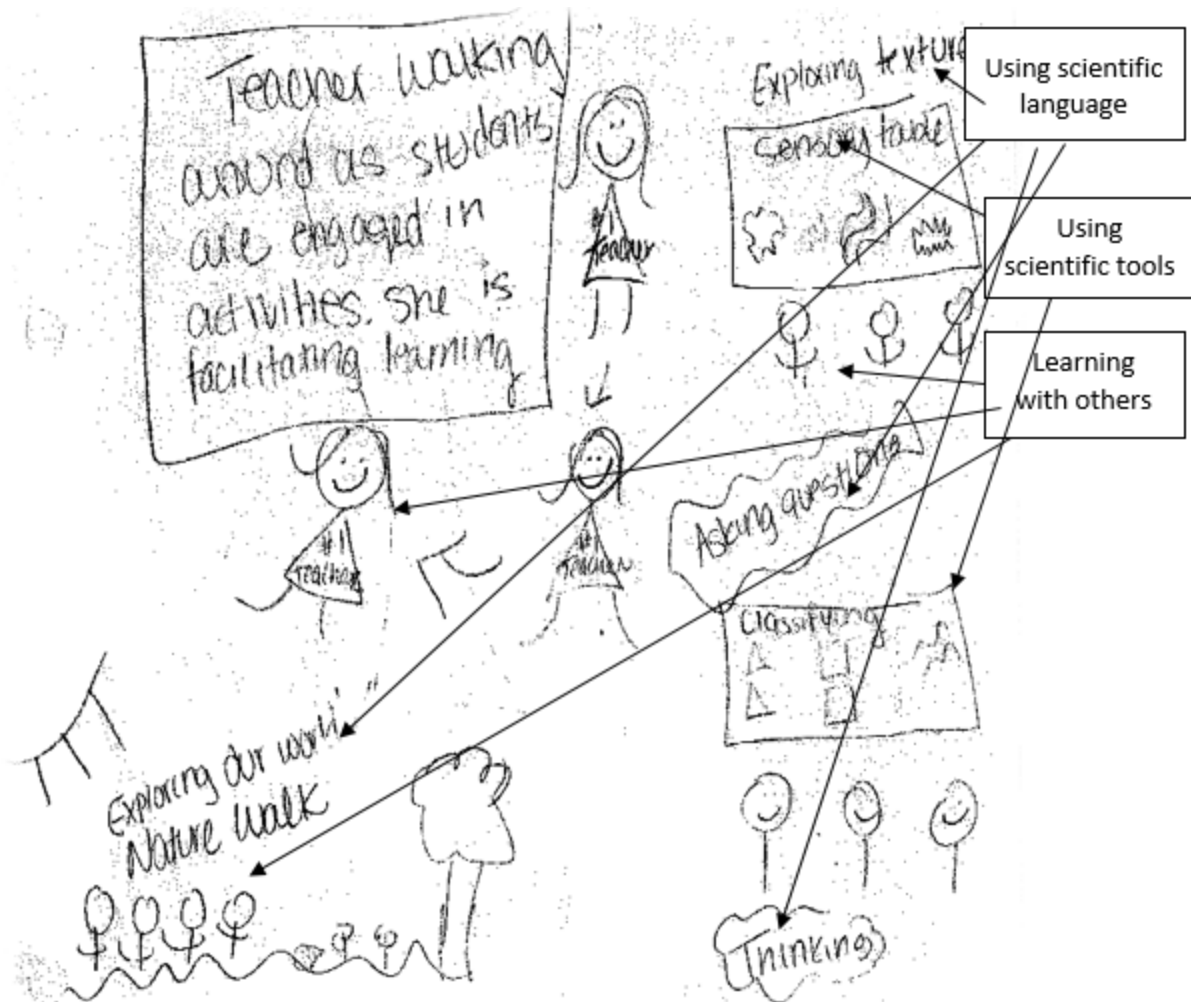 Teacher walking
around as students
are engaged in
activities. She is
facilitating learning
#1
Teacher
Exploring texture
Sensory table
Using scientific
language
Using
scientific tools
Learning
with others
#1
Teacher
#1
Teacher
Asking questions
Classifying
"Exploring our world"
Nature Walk
Thinking